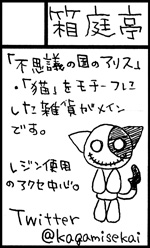 箱庭亭
「不思議の国のアリス」
・「猫」をモチーフに
した雑貨がメイン
です。
レジン使用
のアクセ中心。
Twitter
@kagamisekai